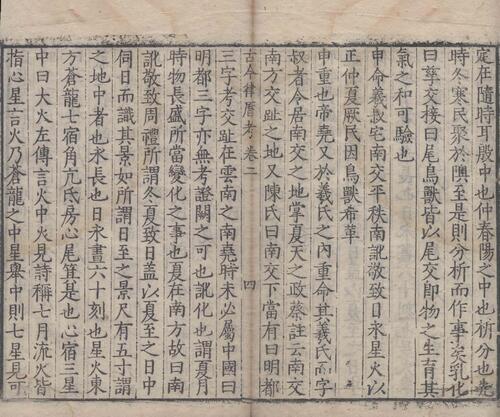 定在隨時耳殷中也仲春陽之中也析分也先
時冬寒民聚於隩至是則分析而作事矣乳化
曰孳交接曰尾鳥獸皆以尾交即物之生育其
氣之和可驗也
申命羲叔宅南交平秩南訛敬致日永星火以
正仲夏厥民因鳥獸希革
申重也帝堯又於羲氏之內重命其羲氏而字
叔者令居南交之地掌夏天之政蔡註云南交
南方交趾之地又陳氏曰南交下當有曰明都
古今律曆考 卷二 四
三字考交趾在雲南之南堯時未必屬中國曰
明都三字亦無考證闕之可也訛化也謂夏月
時物長盛所當變化之事也夏在南方故曰南
訛敬致周禮所謂冬夏致日盖以夏至之日中
伺日而識其景如所謂日至之景尺有五寸謂
之地中者也永長也日永晝六十刻也星火東
方蒼龍七宿角亢氐房心尾箕是也心宿三星
中曰大火左傳言火中火見詩稱七月流火皆
指心星言火乃蒼龍之中星舉中則七星見可